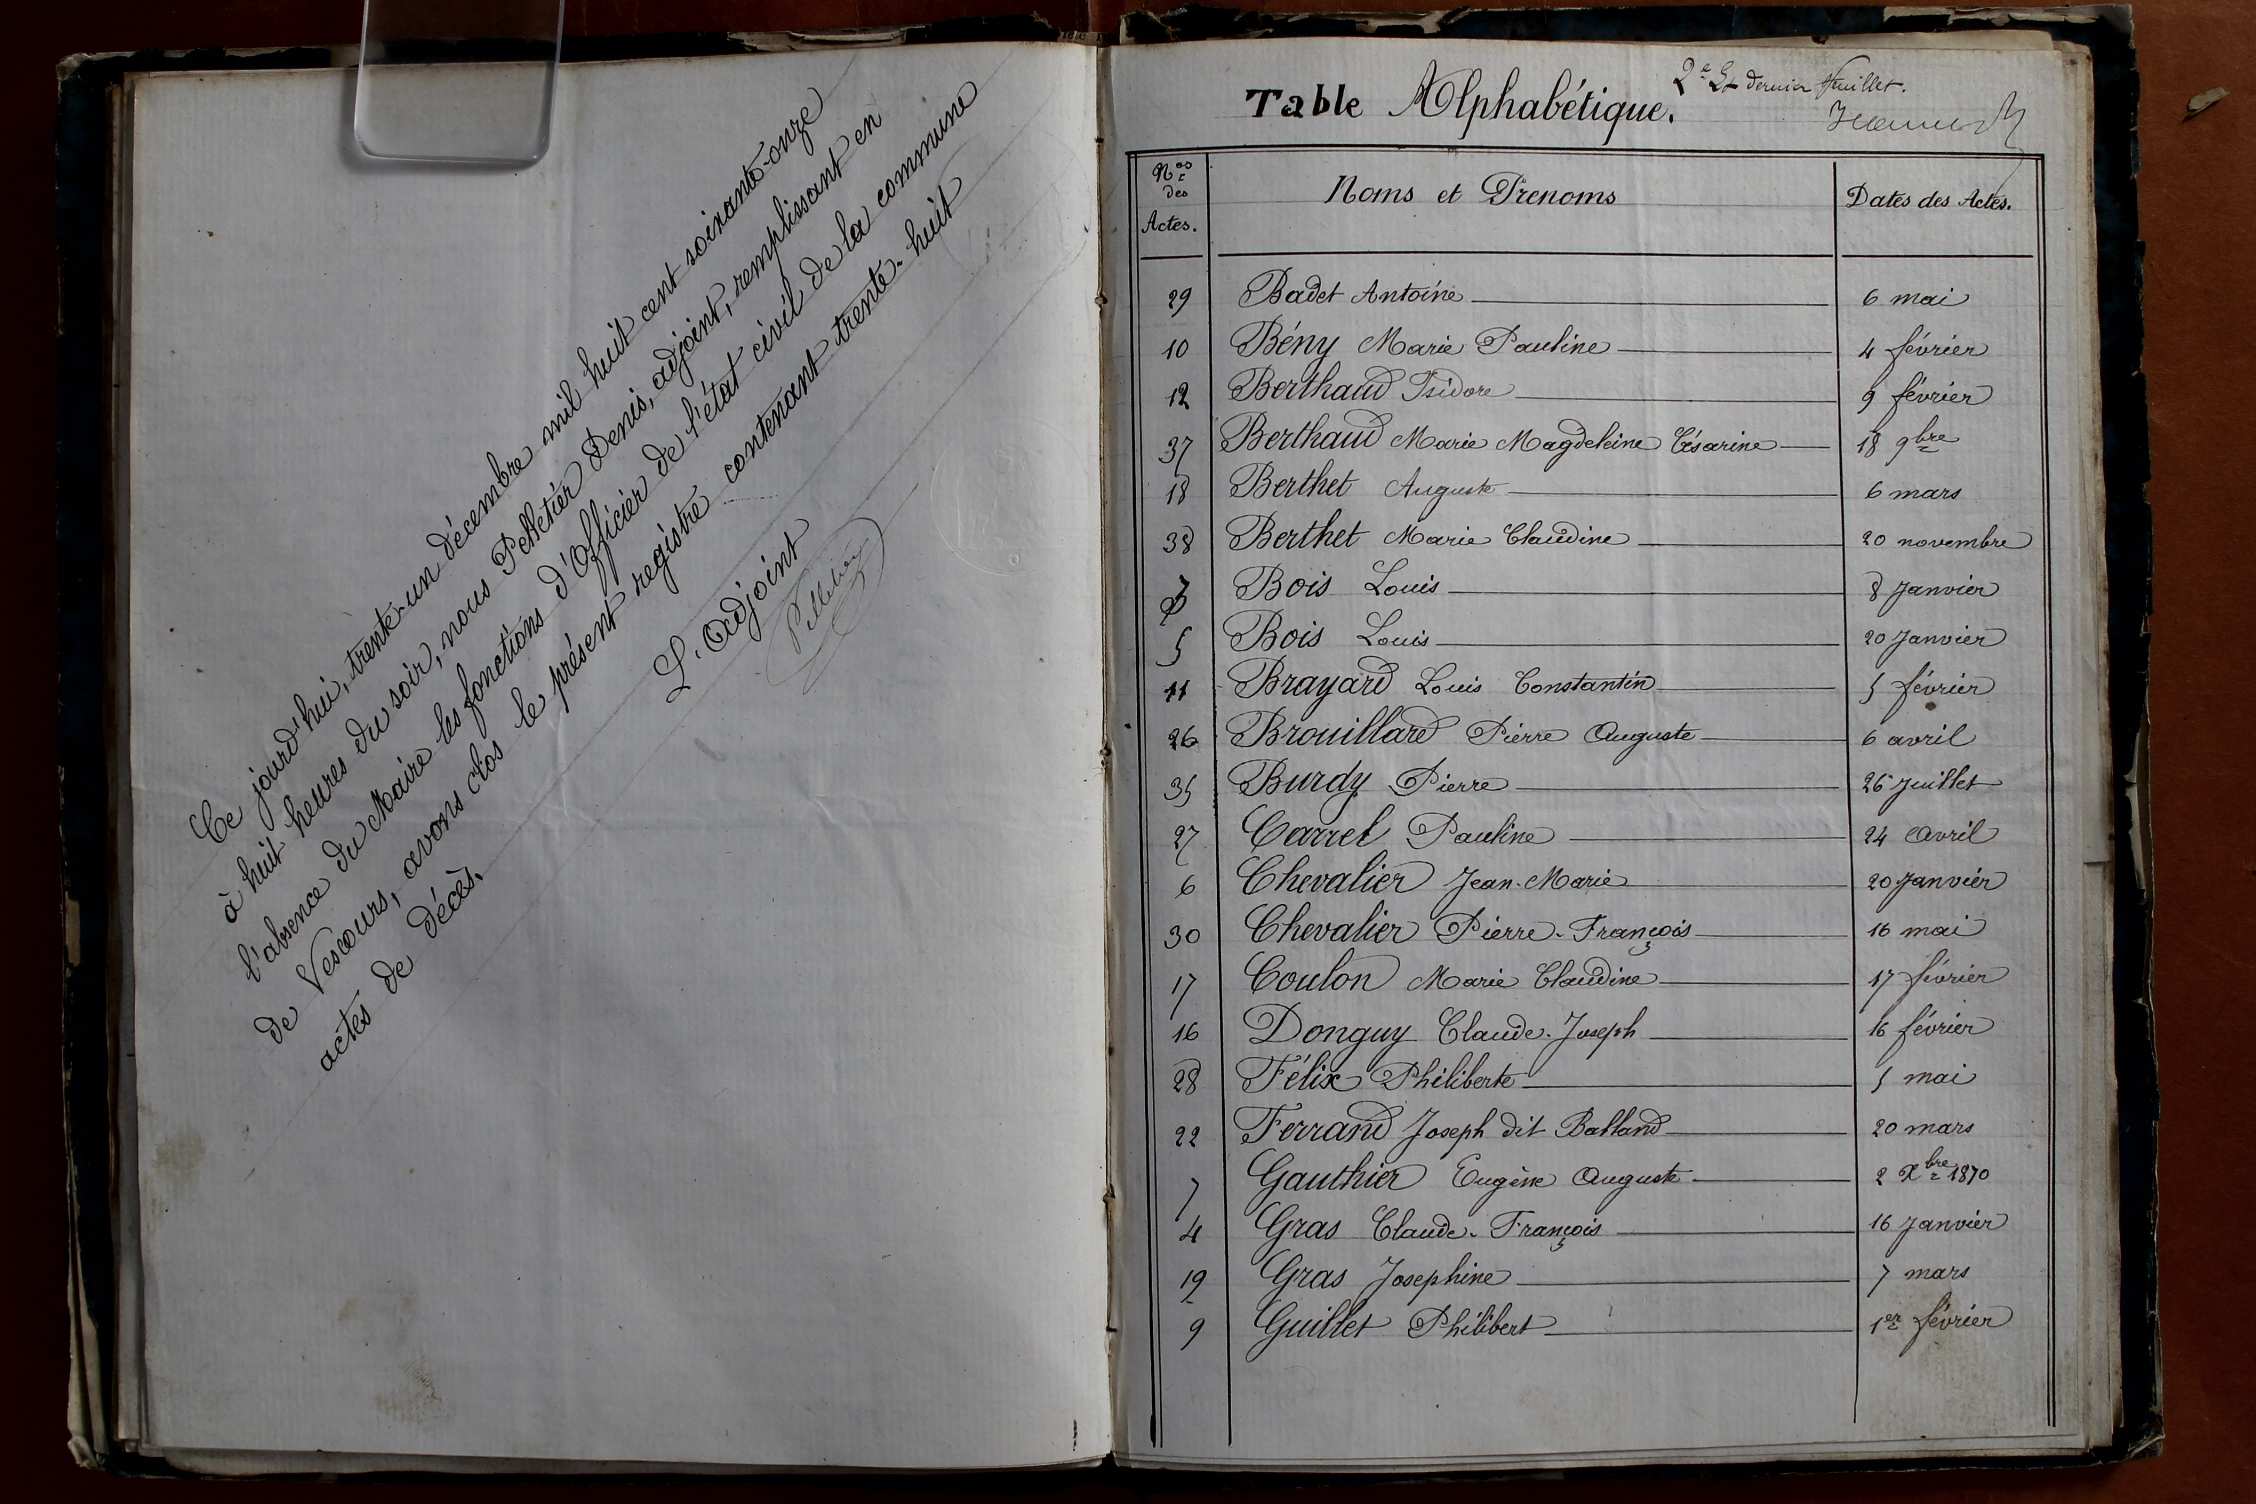 Ce jourd'hui, trente-un décembre mil huit cent soixante-onze
à huit heures du soir, nous Pelletier Denis, adjoint, remplissant en
l'absence du Maire les fonctions d'Officier de l'état civil de la commune
de Vescours, avons clos le présent registre contenant trente-huit
actes de décès.
L'Adjoint
Pelletier
2e Et dernier feuillet.
Table Alphabétique.
Nos des Actes. Noms et Prenoms Dates des Actes.
29 Badet Antoine 6 mai
10 Bény Marie Pauline 4 février
12 Berthaud Isidore 9 février
37 Berthaud Marie Magdeleine Césarine 18 9bre
18 Berthet Auguste 6 mars
38 Berthet Marie Claudine 20 novembre
Bois Louis 8 Janvier
5 Bois Louis 20 Janvier
11 Brayard Louis Constantin 5 février
26 Brouillard Pierre Auguste 6 avril
35 Burdy Pierre 26 Juillet
27 Carrel Pauline 24 Avril
6 Chevalier Jean-Marie 20 Janvier
30 Chevalier Pierre-François 16 mai
17 Coulon Marie Claudine 17 février
16 Donguy Claude-Joseph 16 février
28 Félix Philiberte 5 mai
22 Ferrand Joseph dit Balland 20 mars
7 Gauthier Eugène Auguste 2 Xbre 1870
4 Gras Claude-François 16 Janvier
19 Gras Josephine 7 mars
9 Guillet Philibert 1er février